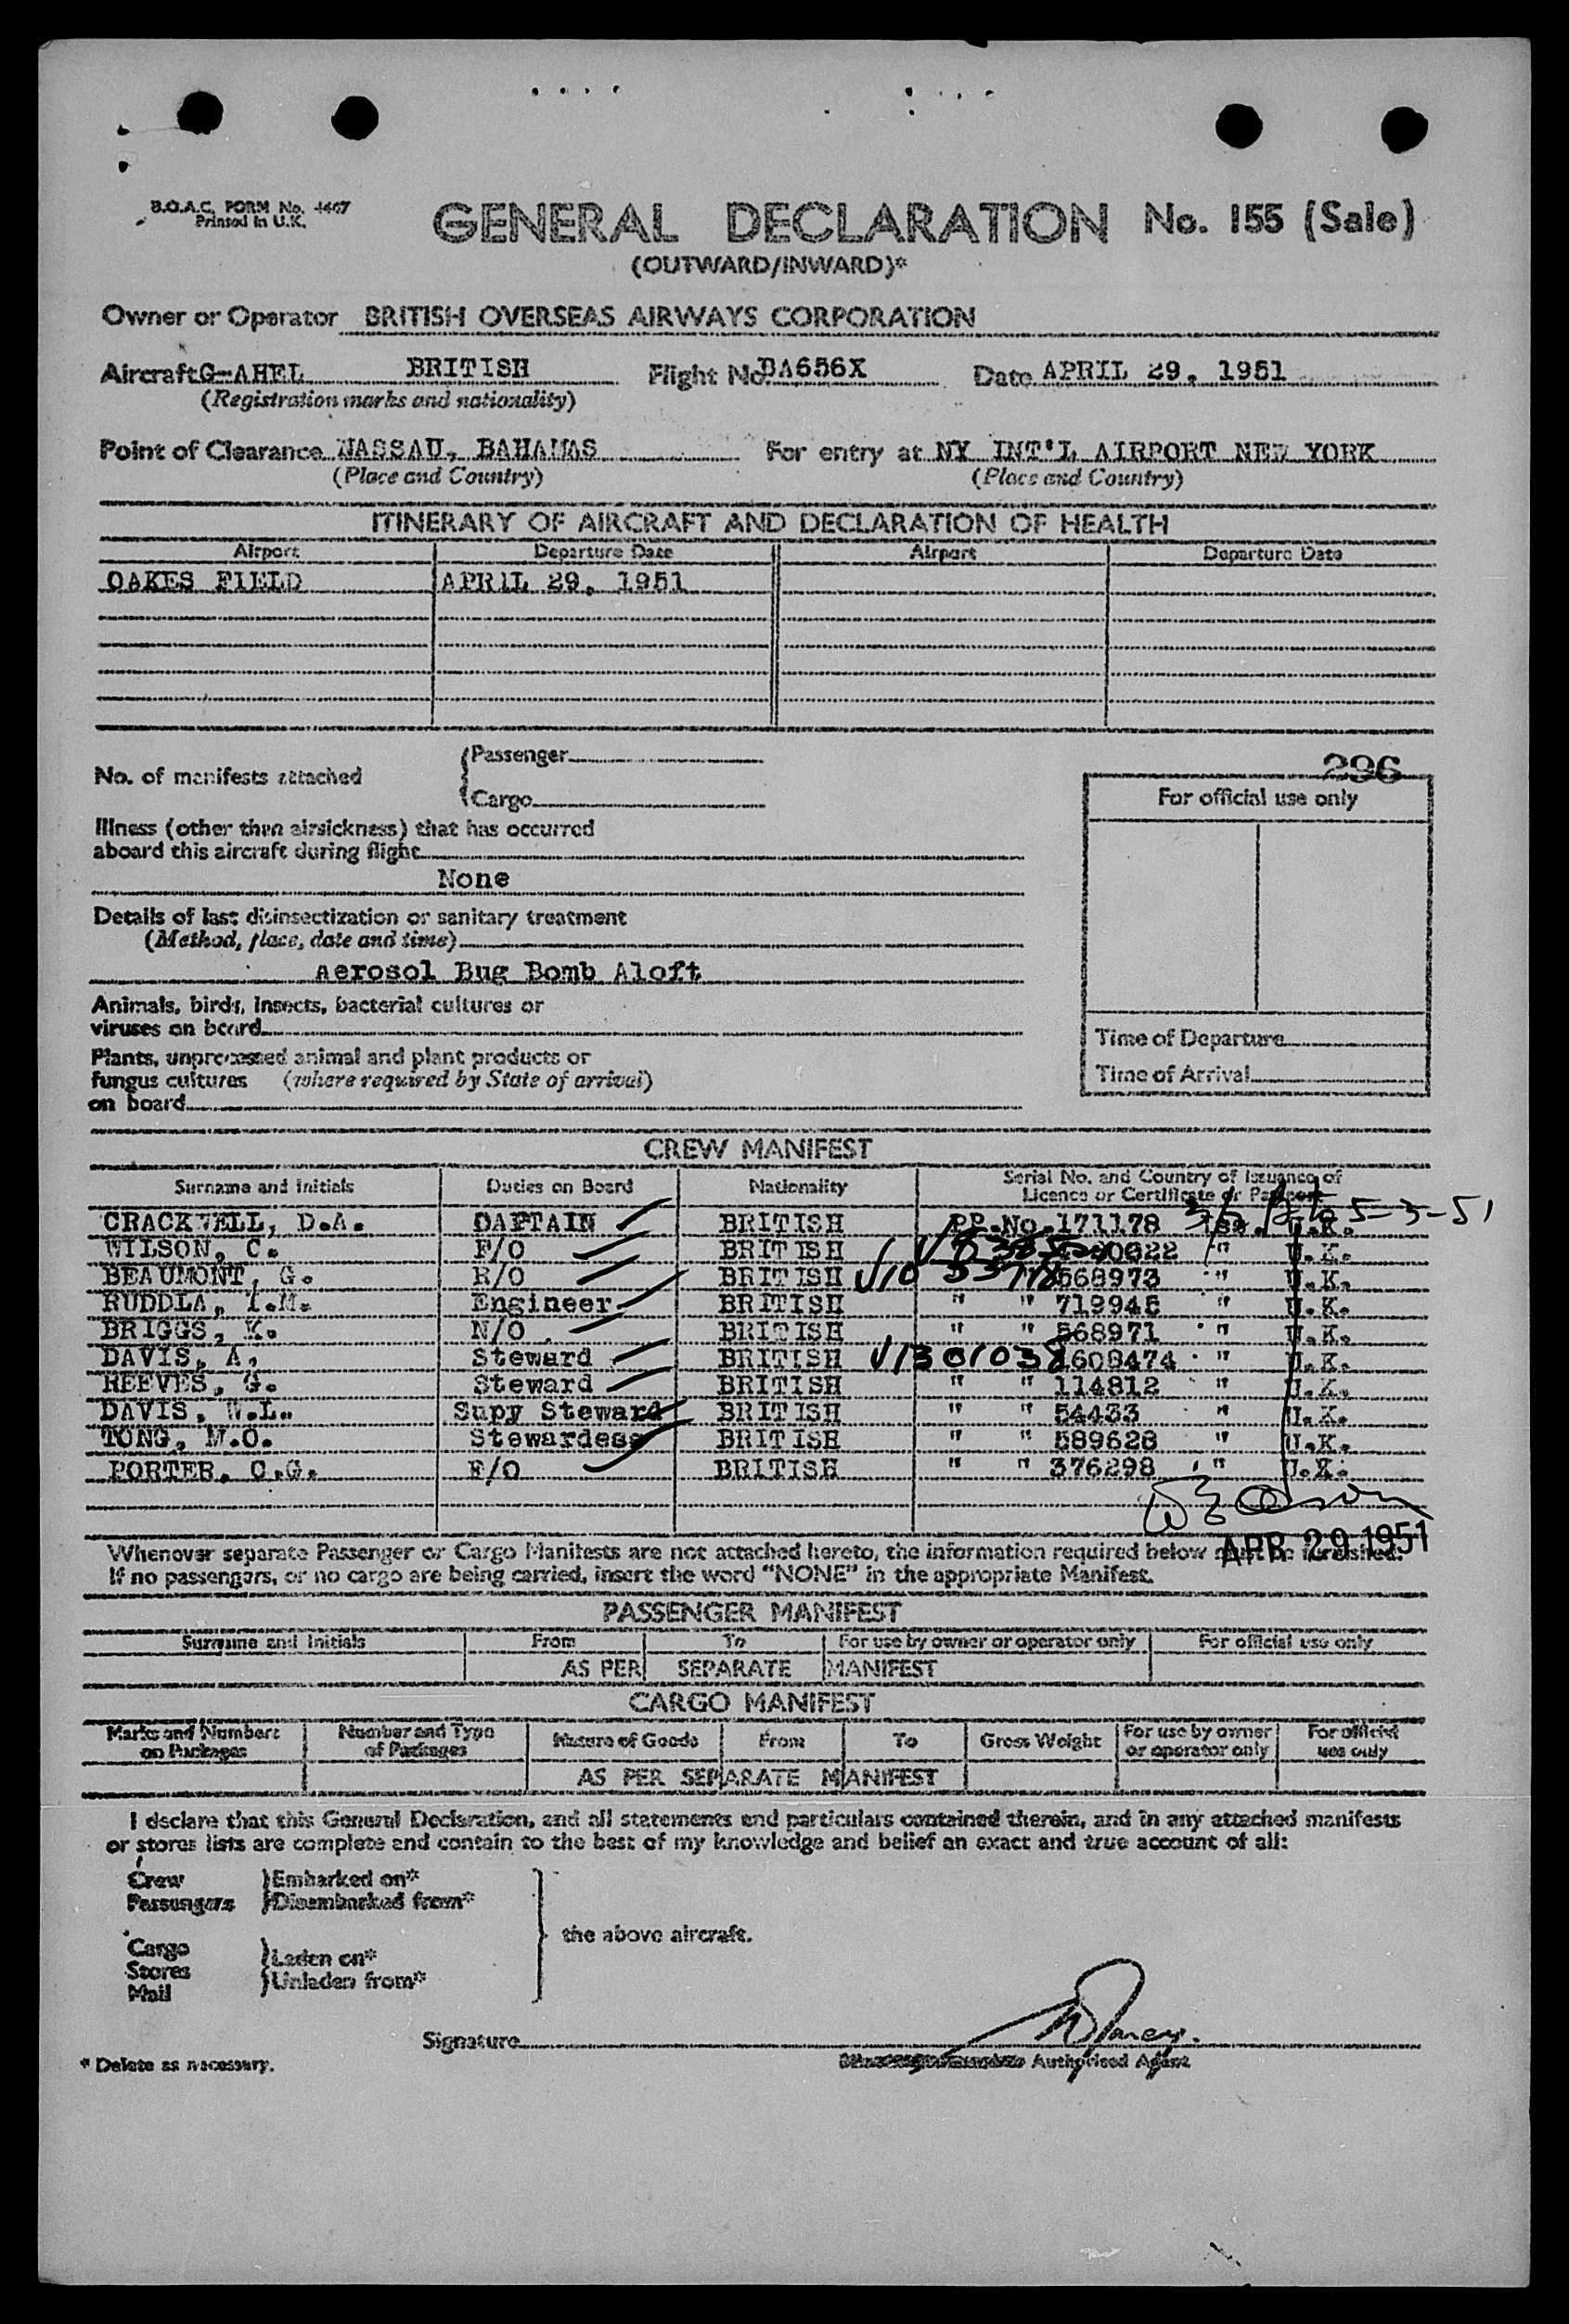 B.O.A.C. FORM No. 4467
Printed in U.K.
GENERAL DECLARATION No. 155 (Sale)
(OUTWARD/INWARD)*
Owner or Operator BRITISH OVERSEAS AIRWAYS CORPORATION
Aircraft G-AHEL BRITISH Flight No. BA656X Date APRIL 29, 1951
(Registration marks and nationality)
Point of Clearance NASSAU, BAHAMAS For entry at NY INT'L AIRPORT NEW YORK
(Place and Country) (Place and Country)
ITINERARY OF AIRCRAFT AND DECLARATION OF HEALTH
Airport Departure Date Airport Departure Date
OAKES FIELD APRIL 29, 1951
No. of manifests attached
Passenger
Cargo
296
For official use only
Illness (other than airsickness) that has occurred
aboard this aircraft during flight
None
Details of last disinsectization or sanitary treatment
(Method, place, date and time)
Aerosol Bug Bomb Aloft
Animals, birds, insects, bacterial cultures or
viruses on board
Plants, unprocessed animal and plant products or
fungus cultures (where required by State of arrival)
on board
Time of Departure
Time of Arrival
CREW MANIFEST
Surname and Initials Duties on Board Nationality Serial No. and Country of Issuance of
Licence or Certificate or Passport
CRACKWELL, D.A. CAPTAIN BRITISH PP.No.171178 Iss. U.K. 5-3-51
WILSON, C. F/O BRITISH " U.K.
BEAUMONT, G. R/O BRITISH 568973 " U.K.
RUDDLA, I.M. Engineer BRITISH " " 719945 " U.K.
BRIGGS, K. N/O BRITISH " " 568971 " U.K.
DAVIS, A. Steward BRITISH V1301038 608474 " U.K.
REEVES, G. Steward BRITISH " " 114812 " U.K.
DAVIS, W.L. Supy Steward BRITISH " " 54433 " U.K.
TONG, M.O. Stewardess BRITISH " " 589628 " U.K.
PORTER, C.G. F/O BRITISH " " 376298 " U.K.
APR 29 1951
Whenever separate Passenger or Cargo Manifests are not attached hereto, the information required below must be furnished.
If no passengers, or no cargo are being carried, insert the word "NONE" in the appropriate Manifest.
PASSENGER MANIFEST
Surname and Initials From To For use by owner or operator only For official use only
AS PER SEPARATE MANIFEST
CARGO MANIFEST
Marks and Numbers on Packages Number and Type of Packages Nature of Goods From To Gross Weight For use by owner or operator only For official use only
AS PER SEPARATE MANIFEST
I declare that this General Declaration, and all statements and particulars contained therein, and in any attached manifests
or stores lists are complete and contain to the best of my knowledge and belief an exact and true account of all:
Crew Embarked on*
Passengers Disembarked from*
the above aircraft.
Cargo
Stores Laden on*
Mail Unladen from*
Signature
Authorised Agent
* Delete as necessary.